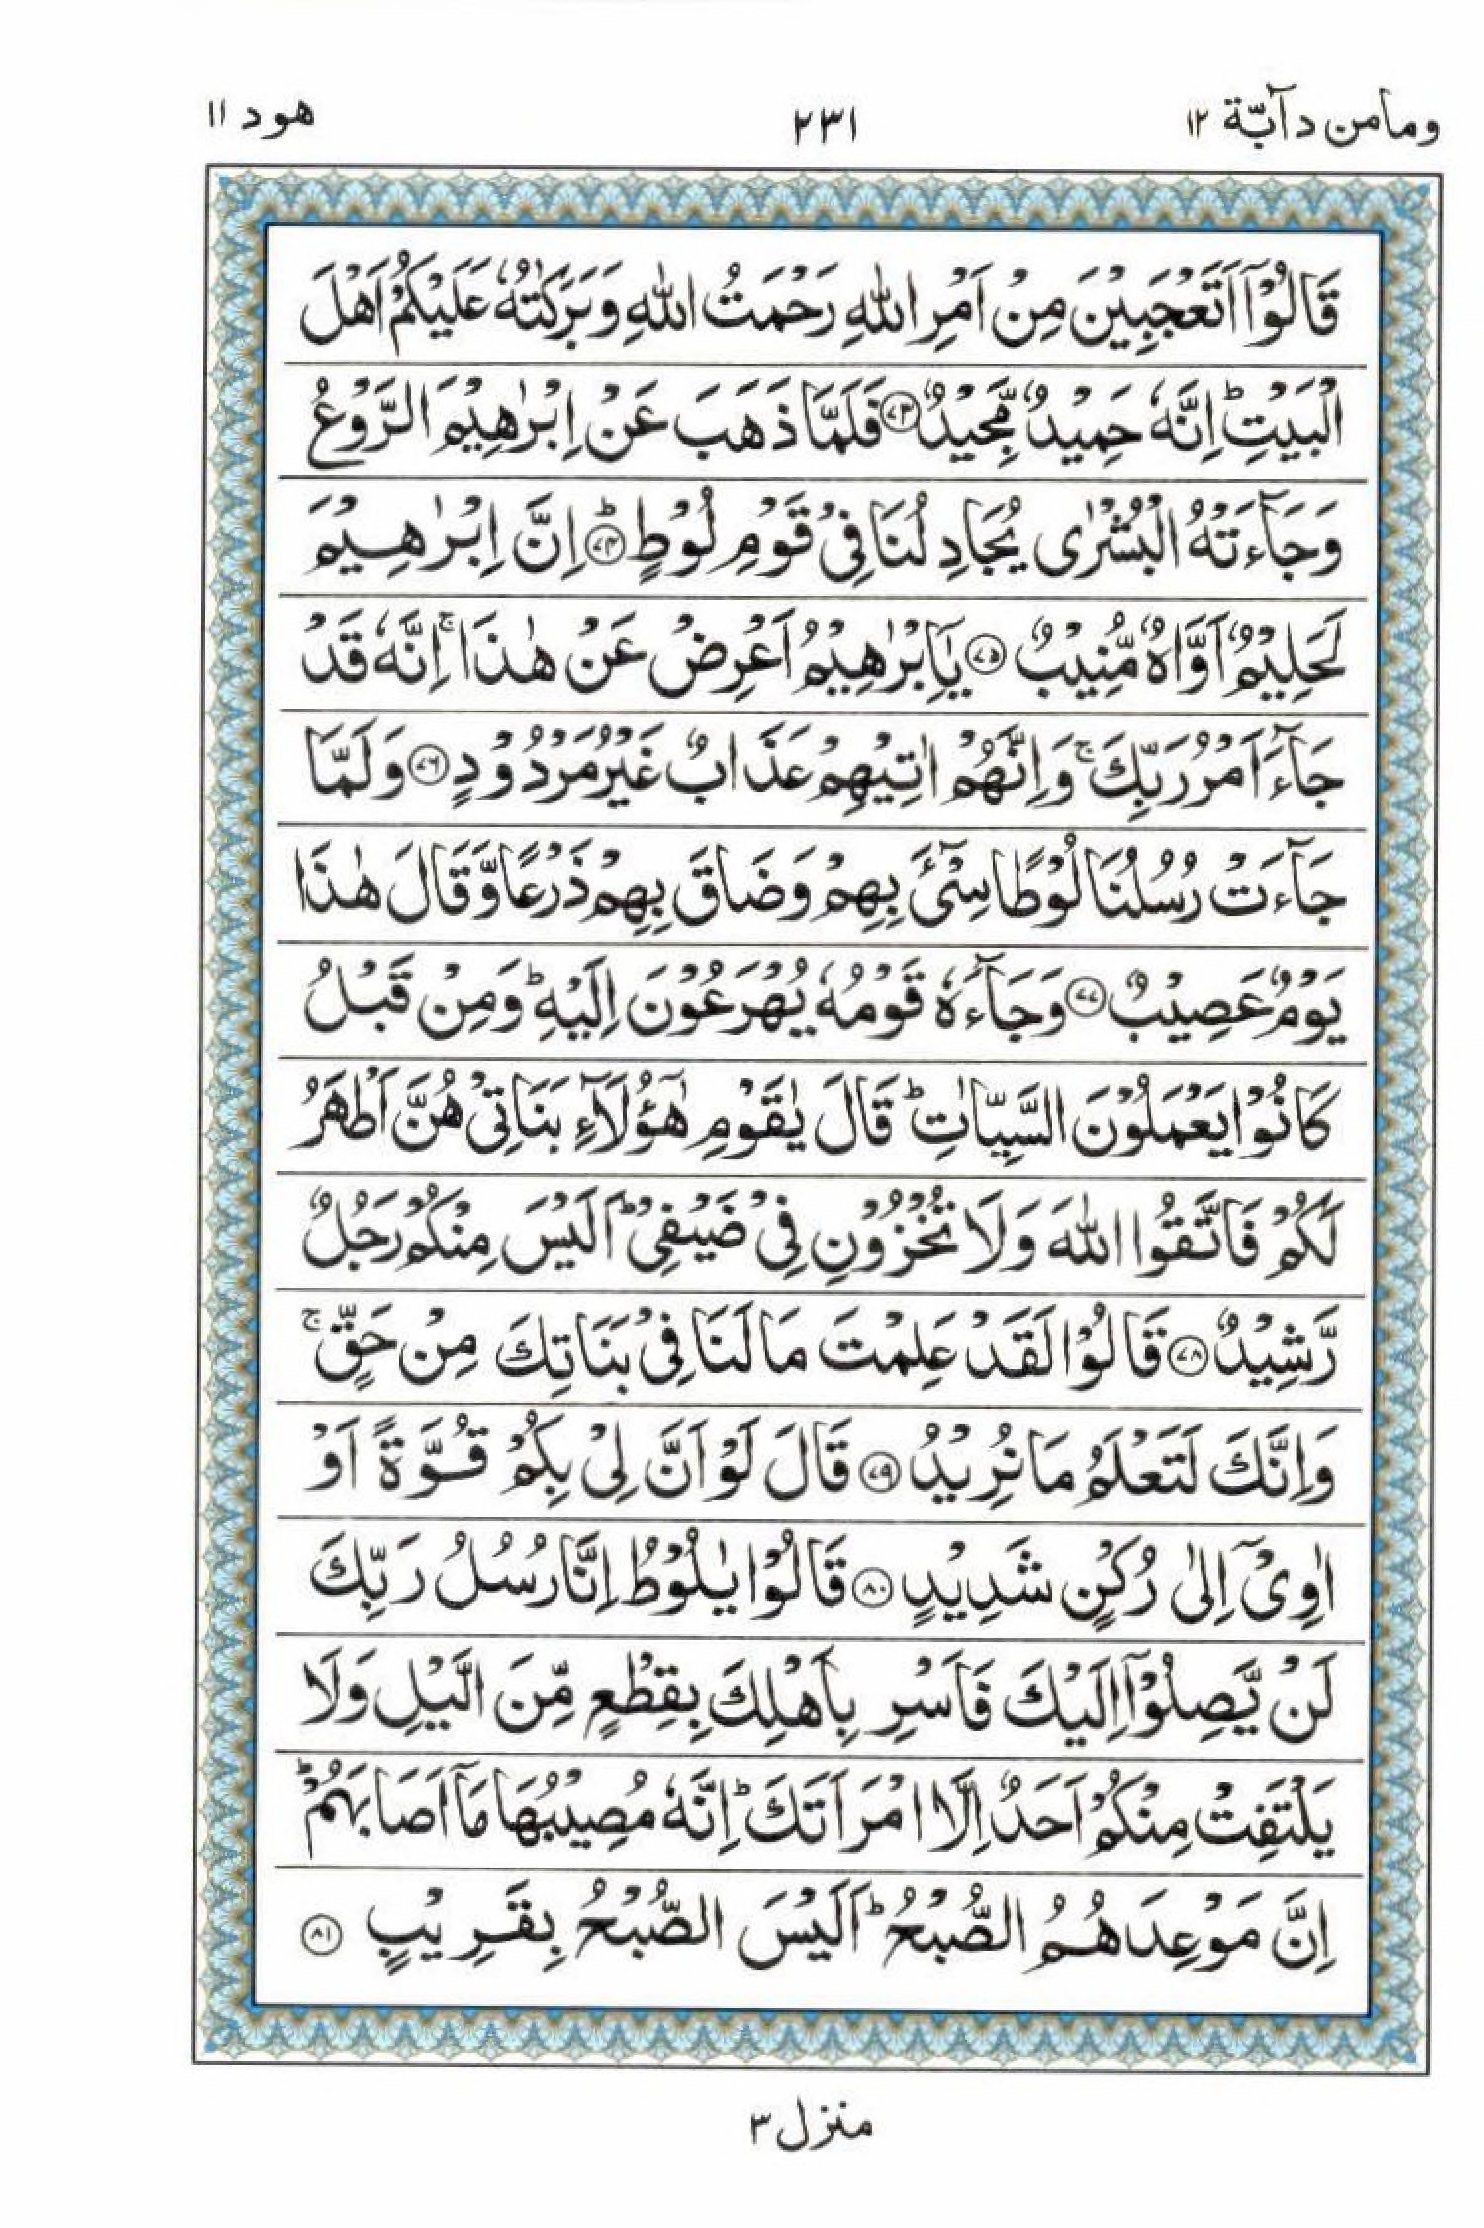 ومامن دآبّة ۱۲
۲۳۱
هود ۱۱
قَالُوْۤا اَتَعْجَبِيْنَ مِنْ اَمْرِ اللّٰهِ رَحْمَتُ اللّٰهِ وَ بَرَكٰتُهٗ عَلَيْكُمْ اَهْلَ
الْبَيْتِ ؕ اِنَّهٗ حَمِيْدٌ مَّجِيْدٌ ﴿۷۳﴾ فَلَمَّا ذَهَبَ عَنْ اِبْرٰهِيْمَ الرَّوْعُ
وَ جَآءَتْهُ الْبُشْرٰى يُجَادِلُنَا فِىْ قَوْمِ لُوْطٍ ؕ ﴿۷۴﴾ اِنَّ اِبْرٰهِيْمَ
لَحَلِيْمٌ اَوَّاهٌ مُّنِيْبٌ ﴿۷۵﴾ يٰۤاِبْرٰهِيْمُ اَعْرِضْ عَنْ هٰذَا ۚ اِنَّهٗ قَدْ
جَآءَ اَمْرُ رَبِّكَ ۚ وَ اِنَّهُمْ اٰتِيْهِمْ عَذَابٌ غَيْرُ مَرْدُوْدٍ ﴿۷۶﴾ وَ لَمَّا
جَآءَتْ رُسُلُنَا لُوْطًا سِیْٓءَ بِهِمْ وَ ضَاقَ بِهِمْ ذَرْعًا وَّ قَالَ هٰذَا
يَوْمٌ عَصِيْبٌ ﴿۷۷﴾ وَ جَآءَهٗ قَوْمُهٗ يُهْرَعُوْنَ اِلَيْهِ ؕ وَ مِنْ قَبْلُ
كَانُوْا يَعْمَلُوْنَ السَّيِّاٰتِ ؕ قَالَ يٰقَوْمِ هٰۤؤُلَآءِ بَنَاتِىْ هُنَّ اَطْهَرُ
لَكُمْ فَاتَّقُوا اللّٰهَ وَ لَا تُخْزُوْنِ فِىْ ضَيْفِىْ ؕ اَلَيْسَ مِنْكُمْ رَجُلٌ
رَّشِيْدٌ ﴿۷۸﴾ قَالُوْا لَقَدْ عَلِمْتَ مَا لَنَا فِىْ بَنَاتِكَ مِنْ حَقٍّ ۚ
وَ اِنَّكَ لَتَعْلَمُ مَا نُرِيْدُ ﴿۷۹﴾ قَالَ لَوْ اَنَّ لِىْ بِكُمْ قُوَّةً اَوْ
اٰوِىْۤ اِلٰى رُكْنٍ شَدِيْدٍ ﴿۸۰﴾ قَالُوْا يٰلُوْطُ اِنَّا رُسُلُ رَبِّكَ
لَنْ يَّصِلُوْۤا اِلَيْكَ فَاَسْرِ بِاَهْلِكَ بِقِطْعٍ مِّنَ الَّيْلِ وَ لَا
يَلْتَفِتْ مِنْكُمْ اَحَدٌ اِلَّا امْرَاَتَكَ ؕ اِنَّهٗ مُصِيْبُهَا مَاۤ اَصَابَهُمْ ؕ
اِنَّ مَوْعِدَهُمُ الصُّبْحُ ؕ اَلَيْسَ الصُّبْحُ بِقَرِيْبٍ ﴿۸۱﴾
منزل ۳